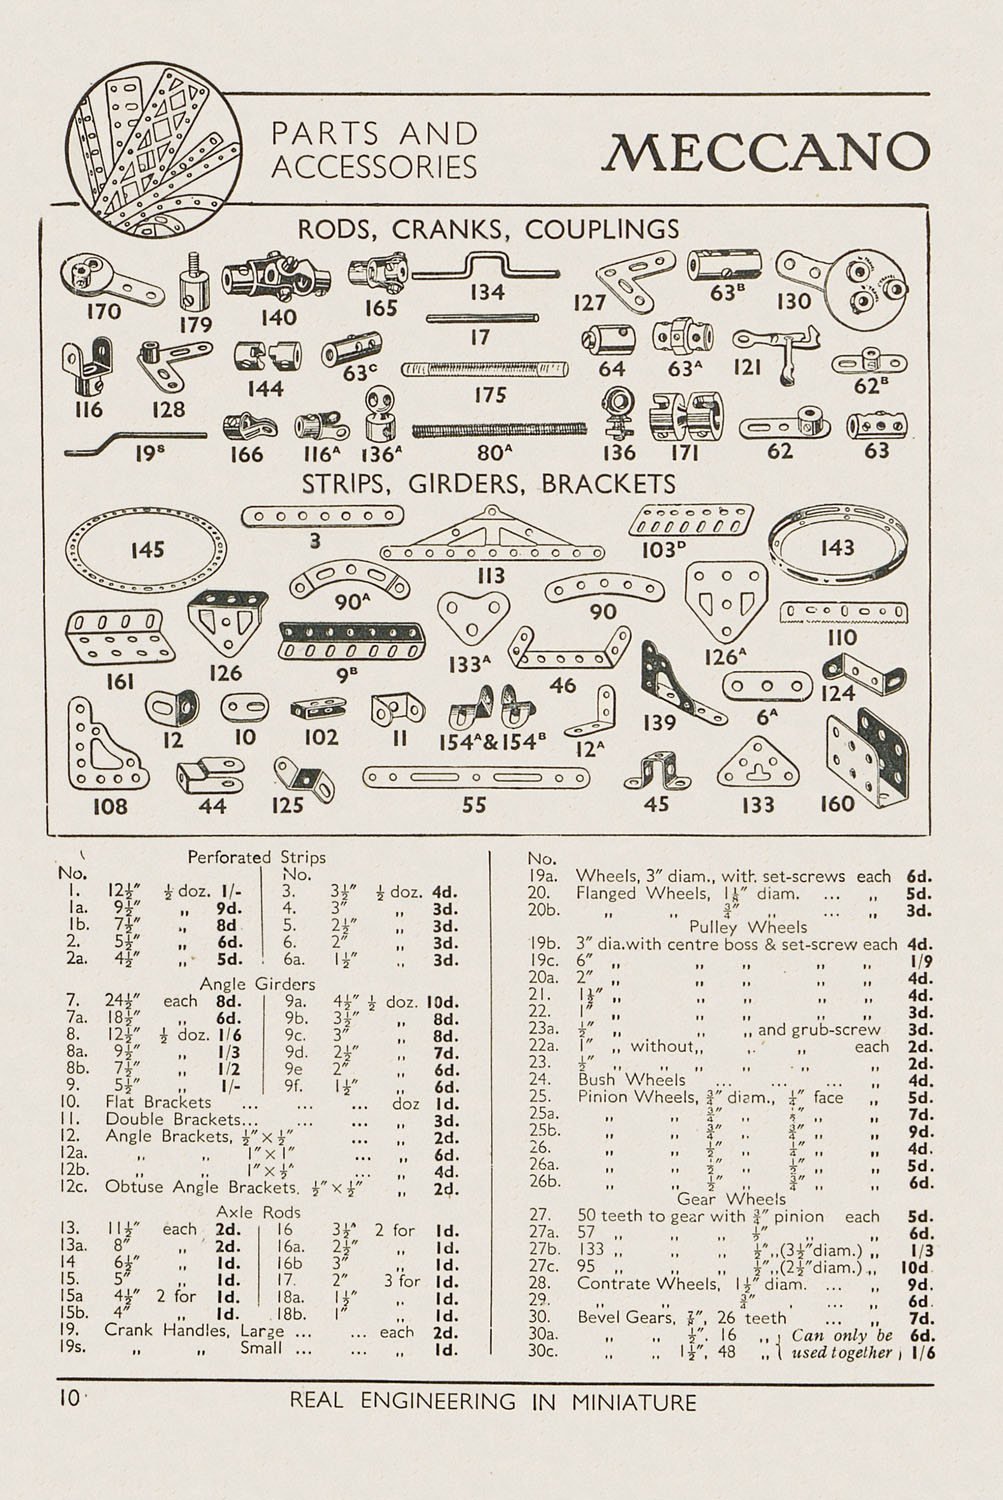 PARTS AND
ACCESSORIES
MECCANO
RODS, CRANKS, COUPLINGS
170 179 140 165 134 127 63B 130
17
116 128 144 63C 175 64 63A 121 62B
19S 166 116A 136A 80A 136 171 62 63
STRIPS, GIRDERS, BRACKETS
145 3 113 103D 143
90A 90 110
161 126 9B 133A 46 126A 124
12 10 102 11 154A&154B 12A 139 6A
108 44 125 55 45 133 160
Perforated Strips
No. No.
1. 12½″ ½ doz. 1/- 3. 3½″ ½ doz. 4d.
1a. 9½″ „ 9d. 4. 3″ „ 3d.
1b. 7½″ „ 8d 5. 2½″ „ 3d.
2. 5½″ „ 6d. 6. 2″ „ 3d.
2a. 4½″ „ 5d. 6a. 1½″ „ 3d.
Angle Girders
7. 24½″ each 8d. 9a. 4½″ ½ doz. 10d.
7a. 18½″ „ 6d. 9b. 3½″ „ 8d.
8. 12½″ ½ doz. 1/6 9c. 3″ „ 8d.
8a. 9½″ „ 1/3 9d. 2½″ „ 7d.
8b. 7½″ „ 1/2 9e 2″ „ 6d.
9. 5½″ „ 1/- 9f. 1½″ „ 6d.
10. Flat Brackets ... ... ... doz 1d.
11. Double Brackets... ... ... „ 3d.
12. Angle Brackets, ½″ × ½″ ... „ 2d.
12a. „ „ 1″ × 1″ ... „ 6d.
12b. „ „ 1″ × ½″ ... „ 4d.
12c. Obtuse Angle Brackets, ½″ × ½″ „ 2d.
Axle Rods
13. 11½″ each 2d. 16 3½″ 2 for 1d.
13a. 8″ „ 2d. 16a. 2½″ „ 1d.
14 6½″ „ 1d. 16b 3″ „ 1d.
15. 5″ „ 1d. 17. 2″ 3 for 1d.
15a 4½″ 2 for 1d. 18a. 1½″ „ 1d.
15b. 4″ „ 1d. 18b. 1″ „ 1d.
19. Crank Handles, Large ... ... each 2d.
19s. „ „ Small ... ... „ 1d.
No.
19a. Wheels, 3″ diam., with set-screws each 6d.
20. Flanged Wheels, 1⅛″ diam. ... „ 5d.
20b. „ „ ¾″ „ ... „ 3d.
Pulley Wheels
19b. 3″ dia.with centre boss & set-screw each 4d.
19c. 6″ „ „ „ „ „ 1/9
20a. 2″ „ „ „ „ „ 4d.
21. 1½″ „ „ „ „ „ 4d.
22. 1″ „ „ „ „ „ 3d.
23a. ½″ „ „ „ and grub-screw 3d.
22a. 1″ „ without „ „ „ each 2d.
23. ½″ „ „ „ „ „ „ 2d.
24. Bush Wheels ... ... ... „ 4d.
25. Pinion Wheels, ¾″ diam., ¼″ face „ 5d.
25a. „ „ ¾″ „ ½″ „ „ 7d.
25b. „ „ ¾″ „ ¾″ „ „ 9d.
26. „ „ ½″ „ ¼″ „ „ 4d.
26a. „ „ ½″ „ ½″ „ „ 5d.
26b. „ „ ½″ „ ¾″ „ „ 6d.
Gear Wheels
27. 50 teeth to gear with ¾″ pinion each 5d.
27a. 57 „ „ „ ½″ „ „ 6d.
27b. 133 „ „ „ ½″ „ (3½″diam.) „ 1/3
27c. 95 „ „ „ ½″ „ (2½″diam.) „ 10d
28. Contrate Wheels, 1½″ diam. ... „ 9d.
29. „ „ ¾″ „ ... „ 6d.
30. Bevel Gears, ⅞″, 26 teeth ... „ 7d.
30a. „ „ ½″, 16 „ Can only be 6d.
30c. „ „ 1½″, 48 „ used together 1/6
10 REAL ENGINEERING IN MINIATURE